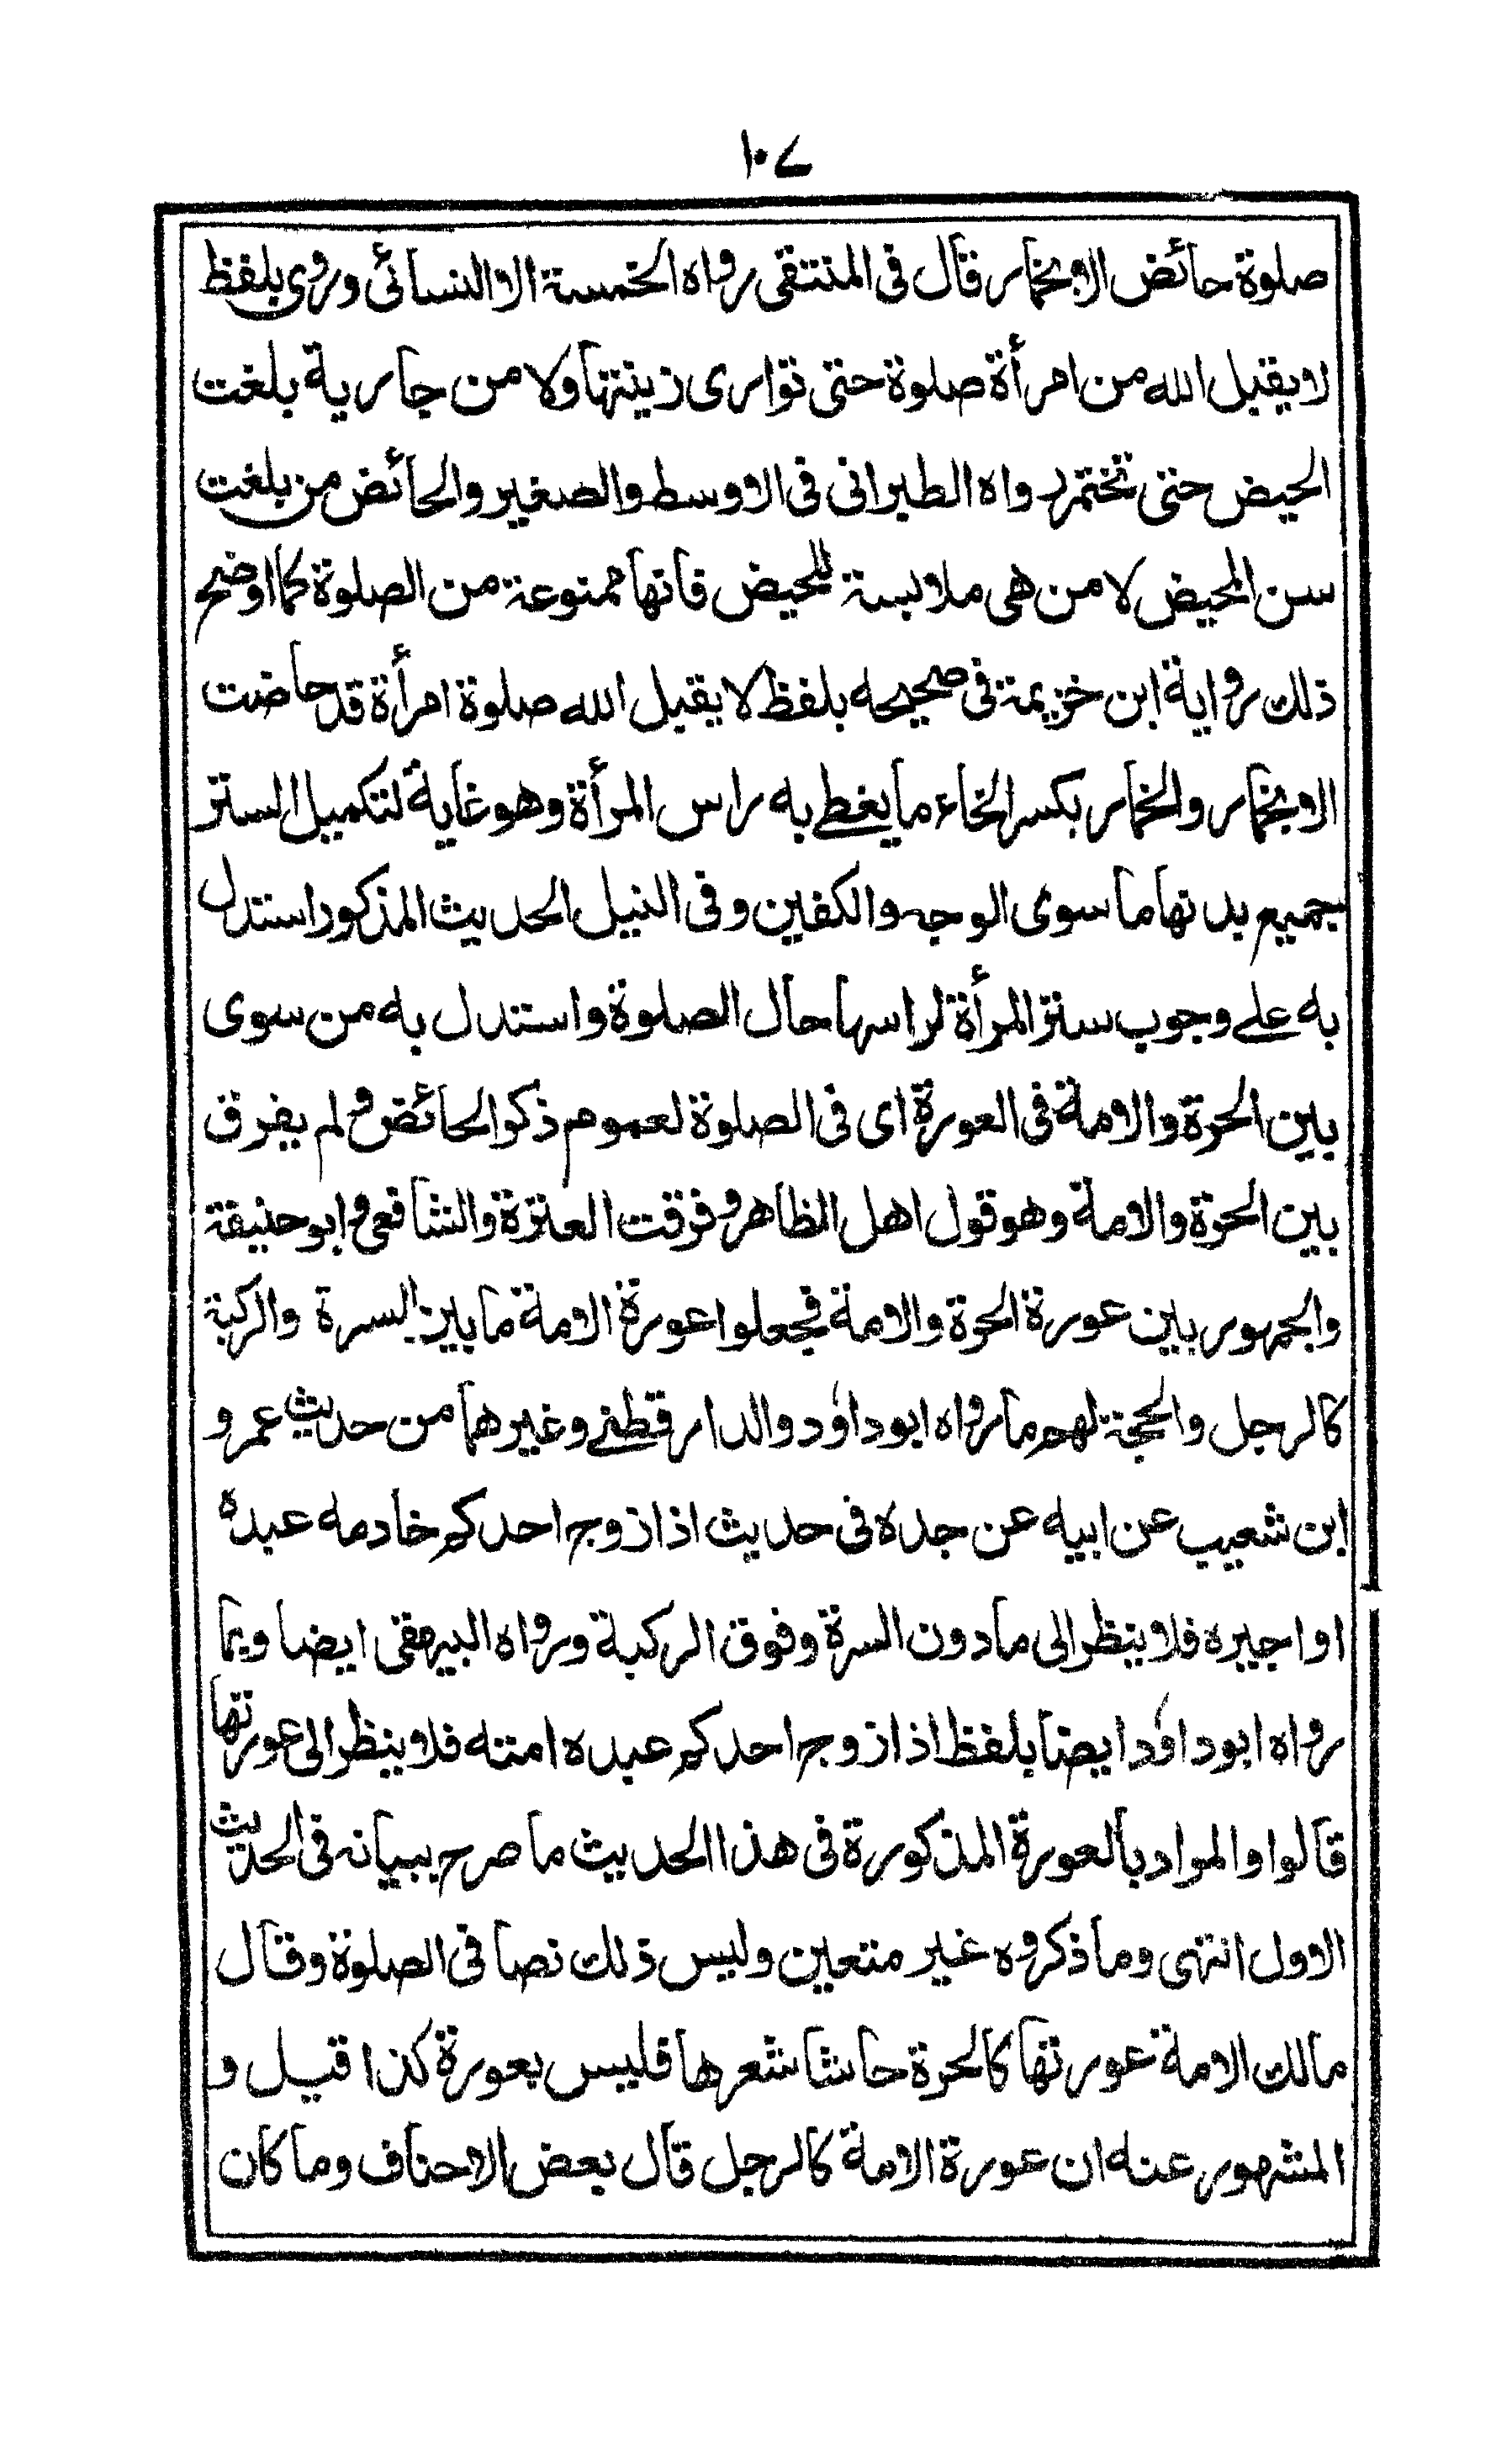 ١٠٧
صلوة حائض الا بخمار قال فى المنتقى رواه الخمسة الا النسائى وروى بلفظ
لا يقبل الله من امرأة صلوة حتى توارى زينتها ولا من جارية بلغت
الحيض حتى تختمر رواه الطبرانى فى الاوسط والصغير والحائض من بلغت
سن المحيض لا من هى ملابسة للحيض فانها ممنوعة من الصلوة كما اوضح
ذلك رواية ابن خزيمة فى صحيحه بلفظ لا يقبل الله صلوة امرأة قد حاضت
الا بخمار والخمار بكسر الخاء ما يغطى به راس المرأة وهو غاية لتكميل الستر
بجميع بدنها ما سوى الوجه والكفين وفى النيل الحديث المذكور استدل
به على وجوب ستر المرأة لراسها حال الصلوة واستدل به من سوى
بين الحرة والامة فى العورة اى فى الصلوة لعموم ذكر الحائض ولم يفرق
بين الحرة والامة وهو قول اهل الظاهر وفرقت العترة والشافعى وابو حنيفة
والجمهور بين عورة الحرة والامة فجعلوا عورة الامة ما بين السرة والركبة
كالرجل والحجة لهم ما رواه ابو داود والدارقطنى وغيرهما من حديث عمرو
ابن شعيب عن ابيه عن جده فى حديث اذا زوج احدكم خادمه عبده
او اجيره فلا ينظر الى ما دون السرة وفوق الركبة ورواه البيهقى ايضا وبما
رواه ابو داود ايضا بلفظ اذا زوج احدكم عبده امته فلا ينظر الى عورتها
قالوا والمراد بالعورة المذكورة فى هذا الحديث ما صرح ببيانه فى الحديث
الاول انتهى وما ذكروه غير متعين وليس ذلك نصا فى الصلوة وقال
مالك الامة عورتها كالحرة حاشا شعرها فليس بعورة كذا قيل و
المشهور عنه ان عورة الامة كالرجل قال بعض الاحناف وما كان